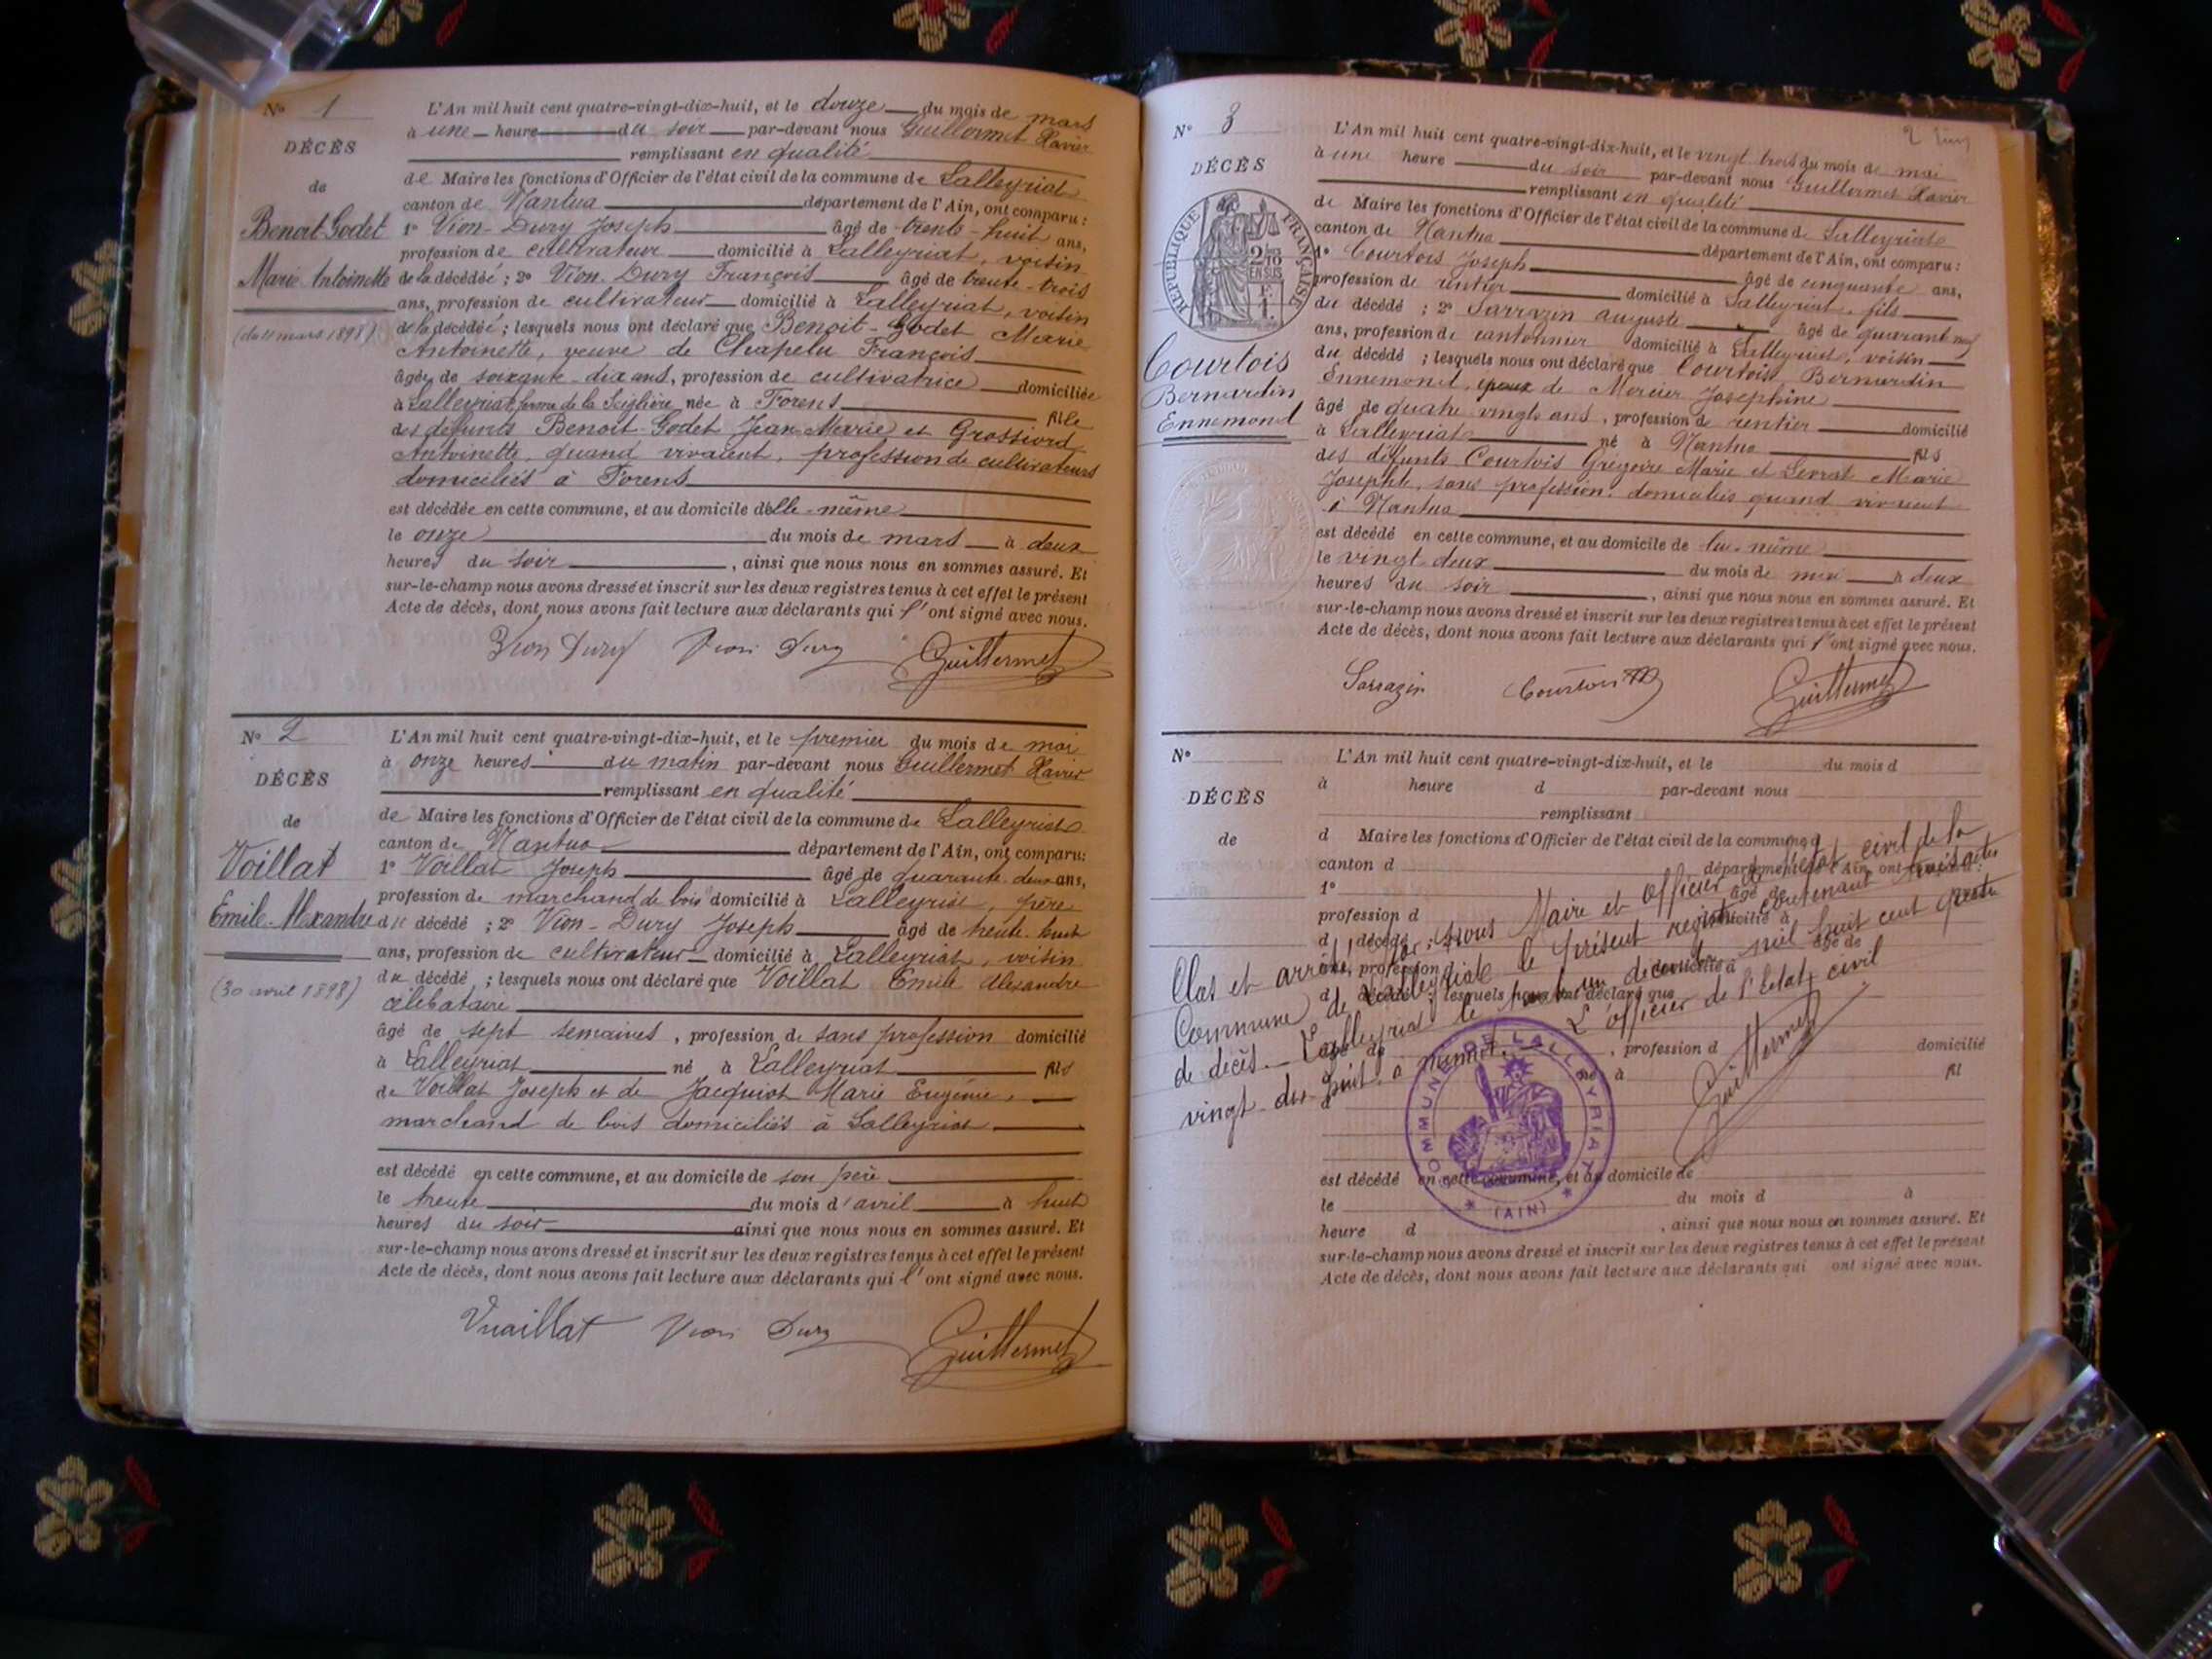 N° 1
DÉCÈS
de
Benoit-Godet
Marie Antoinette
(du 11 mars 1898)
L'An mil huit cent quatre-vingt-dix-huit, et le douze du mois de mars
à une heure du soir par-devant nous Guillermet Xavier
remplissant en qualité
de Maire les fonctions d'Officier de l'état civil de la commune de Lalleyriat
canton de Nantua département de l'Ain, ont comparu :
1° Vion-Dury Joseph âgé de trente-huit ans,
profession de cultivateur domicilié à Lalleyriat, voisin
de la décédée ; 2° Vion-Dury François âgé de trente-trois
ans, profession de cultivateur domicilié à Lalleyriat, voisin
de la décédée ; lesquels nous ont déclaré que Benoit-Godet Marie
Antoinette, veuve de Chapelu François
âgée de soixante-dix ans, profession de cultivatrice domiciliée
à Lalleyriat ferme de la Seiglière née à Forens fille
des défunts Benoit-Godet Jean-Marie et Grossiord
Antoinette, quand vivaient, profession de cultivateurs
domiciliés à Forens
est décédée en cette commune, et au domicile d'elle-même
le onze du mois de mars à deux
heures du soir, ainsi que nous nous en sommes assuré. Et
sur-le-champ nous avons dressé et inscrit sur les deux registres tenus à cet effet le présent
Acte de décès, dont nous avons fait lecture aux déclarants qui l'ont signé avec nous.
Vion Dury Vion Dury Guillermet
N° 2
DÉCÈS
de
Voillat
Emile-Alexandre
(30 avril 1898)
L'An mil huit cent quatre-vingt-dix-huit, et le premier du mois de mai
à onze heures du matin par-devant nous Guillermet Xavier
remplissant en qualité
de Maire les fonctions d'Officier de l'état civil de la commune de Lalleyriat
canton de Nantua département de l'Ain, ont comparu :
1° Voillat Joseph âgé de quarante-deux ans,
profession de marchand de bois domicilié à Lalleyriat, père
du décédé ; 2° Vion-Dury Joseph âgé de trente-huit
ans, profession de cultivateur domicilié à Lalleyriat, voisin
du décédé ; lesquels nous ont déclaré que Voillat Emile Alexandre
célibataire
âgé de sept semaines, profession de sans profession domicilié
à Lalleyriat né à Lalleyriat fils
de Voillat Joseph et de Jacquiot Marie Eugénie,
marchand de bois domiciliés à Lalleyriat
est décédé en cette commune, et au domicile de son père
le trente du mois d'avril à huit
heures du soir ainsi que nous nous en sommes assuré. Et
sur-le-champ nous avons dressé et inscrit sur les deux registres tenus à cet effet le présent
Acte de décès, dont nous avons fait lecture aux déclarants qui l'ont signé avec nous.
Vuaillat Vion Dury Guillermet
N° 3
DÉCÈS
RÉPUBLIQUE FRANÇAISE
2/10
EN SUS
Courtois
Bernardin
Ennemond
L'An mil huit cent quatre-vingt-dix-huit, et le vingt trois du mois de mai
à une heure du soir par-devant nous Guillermet Xavier
remplissant en qualité
de Maire les fonctions d'Officier de l'état civil de la commune de Lalleyriat
canton de Nantua département de l'Ain, ont comparu :
1° Courtois Joseph âgé de cinquante ans,
profession de rentier domicilié à Lalleyriat, fils
du décédé ; 2° Sarrazin Auguste âgé de quarante neuf
ans, profession de cantonnier domicilié à Lalleyriat, voisin
du décédé ; lesquels nous ont déclaré que Courtois Bernardin
Ennemond, époux de Mercier Josephine
âgé de quatre vingts ans, profession de rentier domicilié
à Lalleyriat né à Nantua fils
des défunts Courtois Grégoire Marie et Levrat Marie
Josephte, sans profession, domiciliés quand vivaient
à Nantua
est décédé en cette commune, et au domicile de lui-même
le vingt deux du mois de mai à deux
heures du soir, ainsi que nous nous en sommes assuré. Et
sur-le-champ nous avons dressé et inscrit sur les deux registres tenus à cet effet le présent
Acte de décès, dont nous avons fait lecture aux déclarants qui l'ont signé avec nous.
Sarrazin Courtois Guillermet
N°
DÉCÈS
de
L'An mil huit cent quatre-vingt-dix-huit, et le du mois d
à heure d par-devant nous
remplissant
d Maire les fonctions d'Officier de l'état civil de la commune d
canton d département de l'Ain, ont comparu :
1° âgé de
profession d domicilié à
d décédé ; 2° âgé de
ans, profession d domicilié à
d décédé ; lesquels nous ont déclaré que
âgé de , profession d domicilié
à né à fil
d
est décédé en cette commune, et au domicile de
le du mois d à
heure d , ainsi que nous nous en sommes assuré. Et
sur-le-champ nous avons dressé et inscrit sur les deux registres tenus à cet effet le présent
Acte de décès, dont nous avons fait lecture aux déclarants qui ont signé avec nous.
Clos et arrêté par nous Maire et officier de l'état civil de la
Commune de Lalleyriat le présent registre contenant trois actes
de décès. Lalleyriat le trente un décembre mil huit cent quatre
vingt-dix-huit à minuit. L'officier de l'Etat civil
Guillermet
COMMUNE DE LALLEYRIAT
* (AIN) *